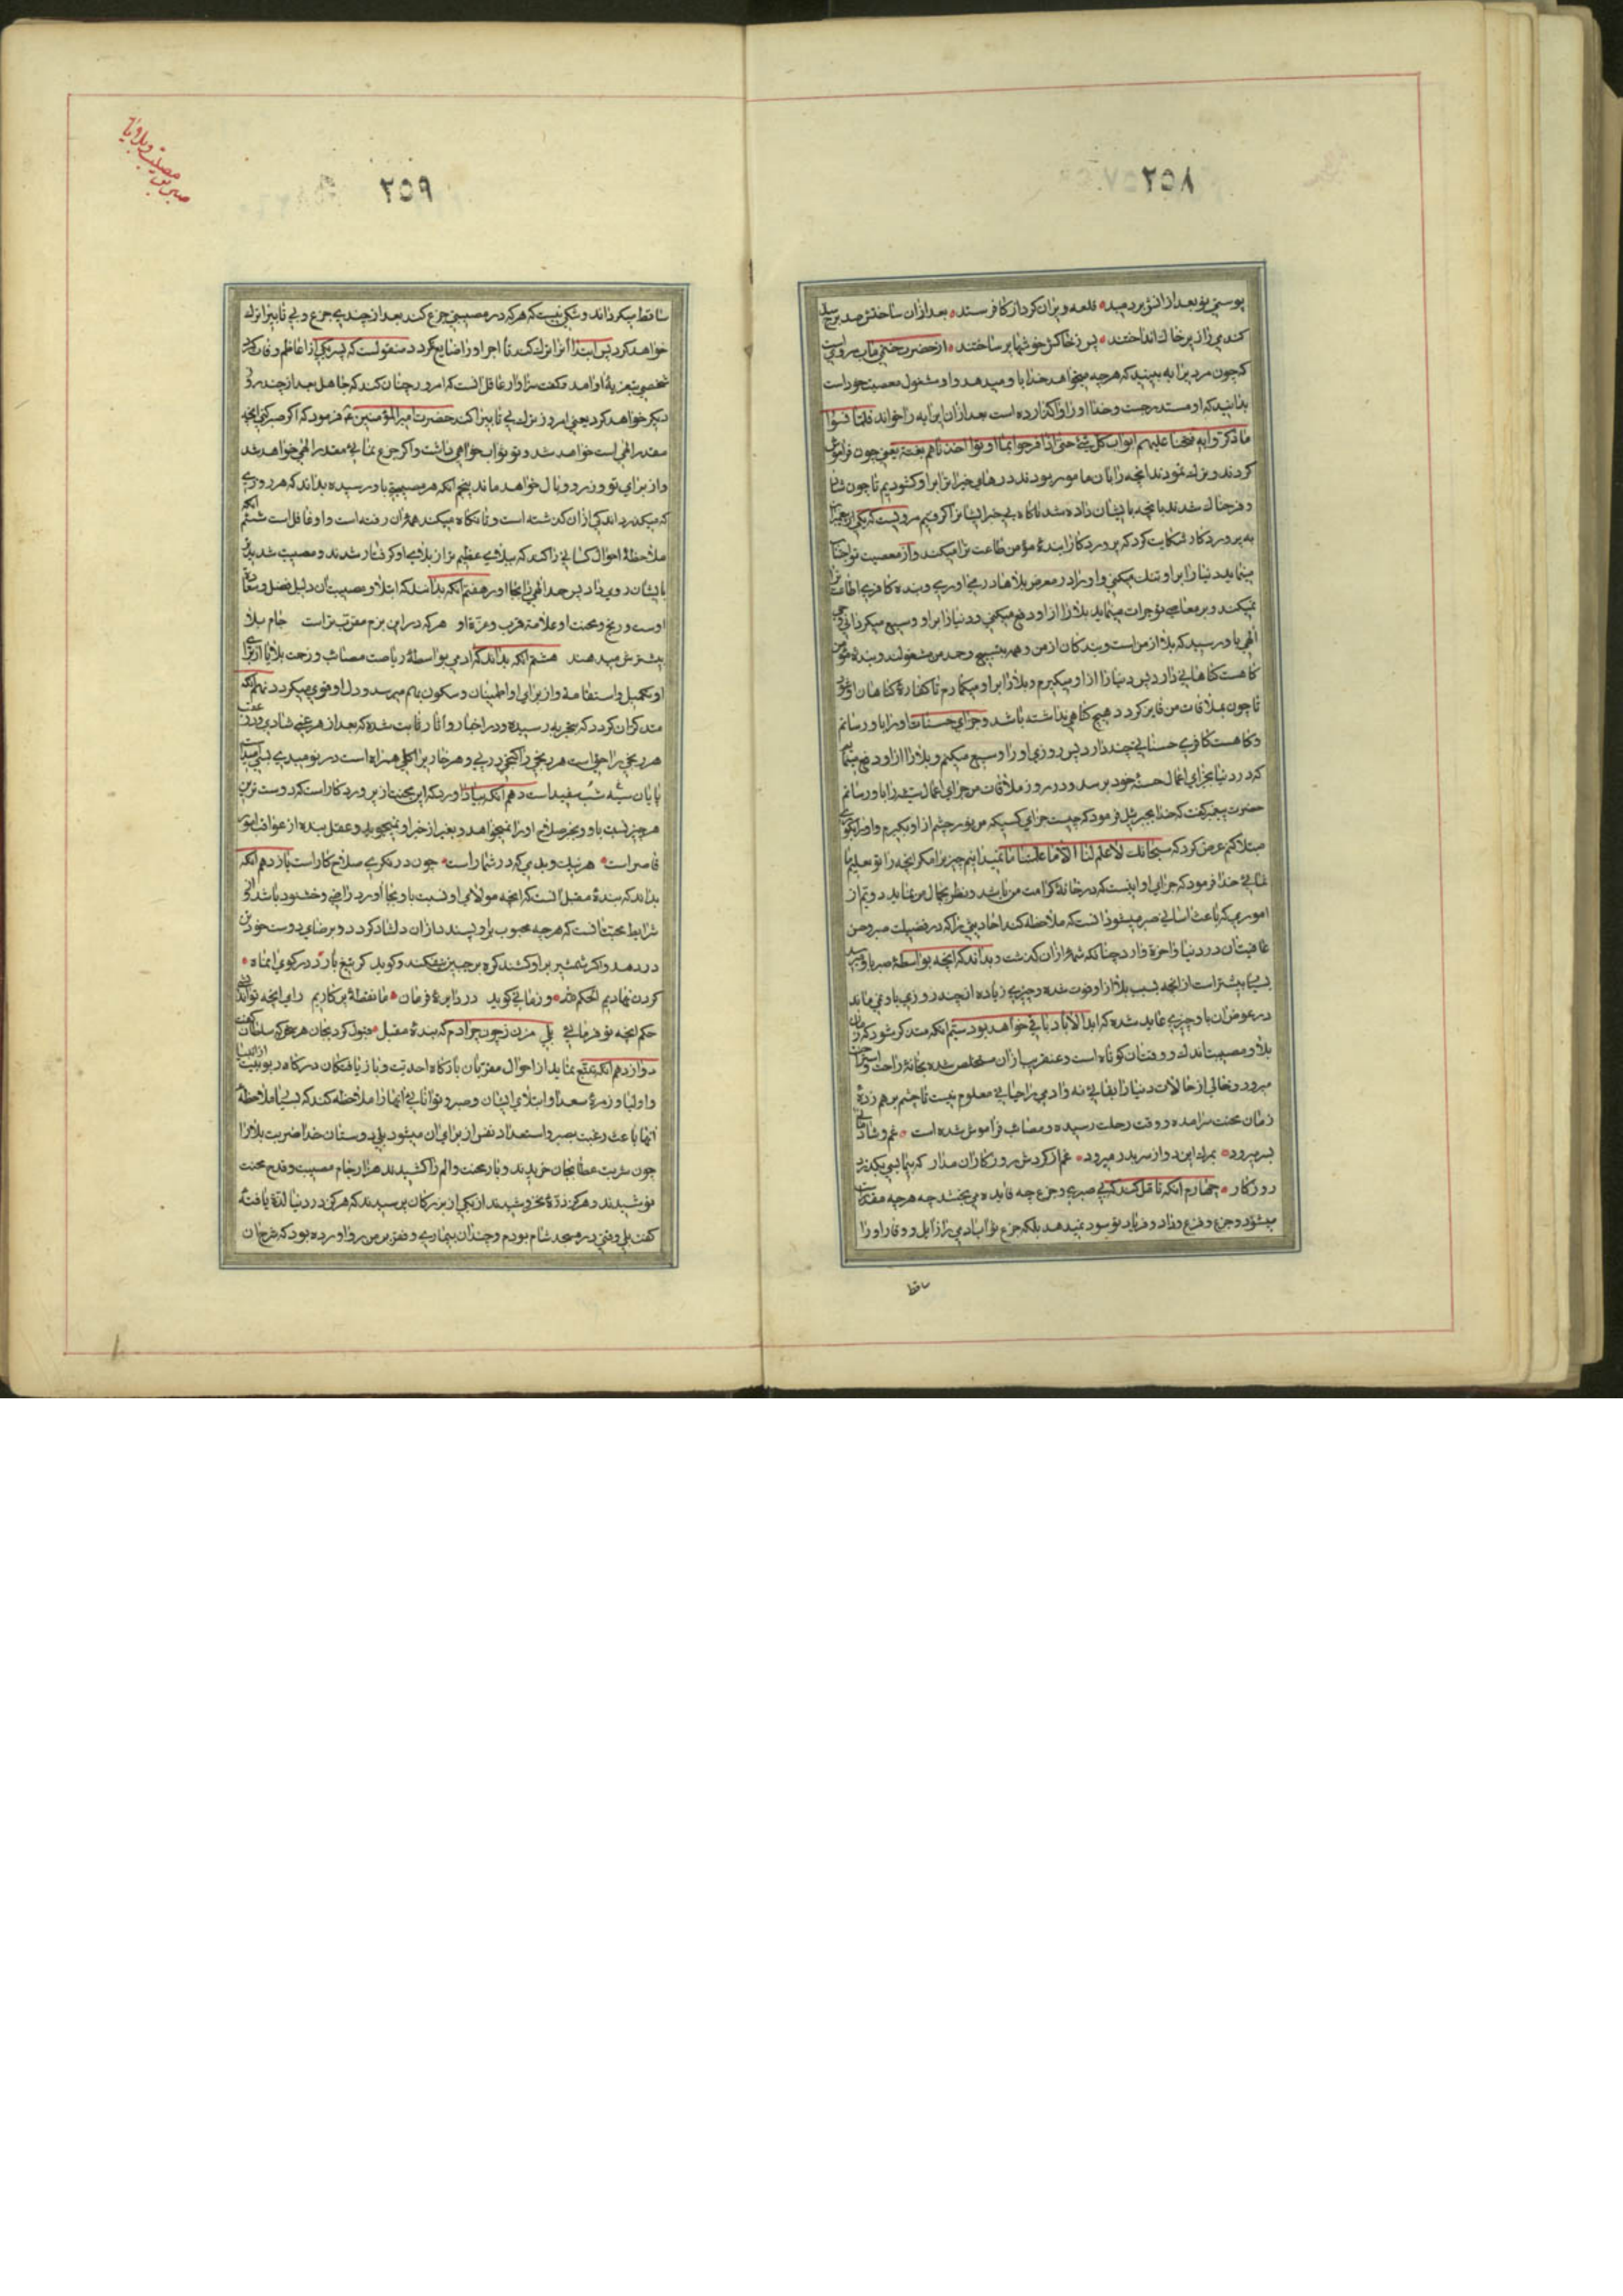 ۲۵۸
پوستی نو بعد از انش بردمید قلعه ویران کرد از کافر ستد بعد از ان ساختش صد برج
کندمی را زیر خاک انداختند پس ز خاکش خوشها بر ساختند از حضرت ختمی ماب مرویست
که چون مردیرا به بینید که هرچه میخواهد خدا باو میدهد و او مشغول معصیت خود است
بدانید که او مستدرجست و خدا او را واکذارده است بعد از ان این ایه را خواند فلما نسوا
ما ذکروا به فتحنا علیهم ابواب کل شیء حتی اذا فرحوا بما اوتوا اخذناهم بغتة یعنی چون فراموش
کردند و ترک نمودند انچه را بان مامور بودند درهای خیرات را بر او کشودیم تا چون شاد
و فرحناک شدند بانچه بایشان داده شد ناکاه بی خبر ایشانرا کرفتیم مرویست که یکی از
به پروردکار شکایت کرد که پروردکارا بندهٔ مؤمن طاعت ترا میکند و از معصیت تو اجتناب
مینماید دنیا را بر او تنک میکنی و او را در معرض بلاها در می اوری و بنده کافری اطاعت
نمیکند و بر معاصی تو جرات مینماید بلا را از او دفع میکنی و دنیا را بر او وسیع میکردانی
الهی باو رسید که بلا از من است و بندکان از من و همه بتسبیح و حمد من مشغولند و بنده مؤمن
کاهست کناهانی دارد پس دنیا را از او میکیرم و بلا را بر او میکمارم تا کفارهٔ کناهان او
تا چون بملاقات من فایز کردد هیچ کناهی نداشته باشد و جزای حسنات او را باو رسانم
و کاهست کافری حسناتی چند دارد پس روزی او را وسیع میکنم و بلا را از او دفع
که در دنیا بجزای اعمال حسنه خود برسد و در روز ملاقات من جزای اعمال او را باو رسانم
حضرت پیغمبر کفت که خدا بجبرئیل فرمود که چیست جزای کسیکه من نور چشم از او بکیرم و او را
مبتلا کنم عرض کرد که سبحانک لا علم لنا الا ما علمتنا ما نمیدانیم چیزیرا مکر انچه را تو تعلیم ما
خدا فرمود که جزای او اینست که در خانهٔ کرامت من باشد و نظر بجمال من نماید دویم از
اموری که باعث اسانی صبر میشود انست که ملاحظه کند احادیثی را که در فضیلت صبر و حسن
عاقبت ان در دنیا و اخرة وارد چنانکه شمهٔ از ان کذشت و بداند که انچه بواسطهٔ صبر باو میرسد
بیشتر است از انچه بسبب بلا از او فوت شده و چیزی زیاده از چند روزی باو نمی ماند
در عوض ان باو چیزی عاید شده که ابد الاباد باقی خواهد بود سیم انکه متذکر شود که زمان
بلا و مصیبت اندک و وقت ان کوتاه است و عنقریب از ان مستخلص شده بخانهٔ راحت و استراحت
میرود و خالی از حالات دنیا را بقایی نه و ادمی را حیاتی معلوم نیست تا چشم بر هم زدهٔ
زمان محنت سرامده و وقت رحلت رسیده و مصائب فراموش شده است غم و شادی
بسر میرود بمرک این دو از سر بدر میرود غم از کردش روزکاران مدار که بیما بسی بکذرد
روزکار چهارم انکه تامل کند که بی صبری و جزع چه فایده می بخشد چه هرچه مقدر است
میشود و جزع و فزع و داد و فریاد تو سود نمیدهد بلکه جزع ثواب ادمی را زایل و وقار او را
ساقط
۲۵۹
صبر بر مصیبت و بلا و
ساقط میکرداند و شکی نیست که هر که در مصیبتی جزع کند بعد از چندی جزع و بی تابی را ترک
خواهد کرد پس ابتدا انرا ترک کند تا اجر او را ضایع نکردد منقولست که پسر یکی از اعاظم وفات کرد
شخصی بتعزیهٔ او امد و کفت سزاوار عاقل انست که امروز چنان کند که جاهل بعد از چند روز
دیکر خواهد کرد یعنی امروز ترک بی تابی را کند حضرت امیر المؤمنین ع فرمود که اکر صبر کنی انچه
مقدر الهی است خواهد شد و تو ثواب خواهی داشت و اکر جزع نمائی مقدر الهی خواهد شد
و از برای تو وزر و وبال خواهد ماند پنجم انکه هر مصیبتی باو رسیده بداند که هر روزی
که میکذرد اندکی از ان کذشته است و تا نکاه میکند همهٔ ان رفته است و او غافل است ششم انکه
ملاحظهٔ احوال کسانی را کند که ببلای عظیم تر از بلای او کرفتار شدند و مصیبت شدید
بایشان روی داد پس حمد الهی را بجا اورد هفتم انکه بداند که ابتلا و مصیبت ان دلیل فضل و سعادة
اوست و رنج و محنت او علامة قرب و عزة او هر که در این بزم مقرب تر است جام بلا
بیشترش میدهند هشتم انکه بداند که ادمی بواسطهٔ ریاضت مصائب و زحمت بلایا از برای
او تکمیل و استقامة و از برای او اطمینان و سکون بهم میرسد و دل او قوی میکردد نهم انکه
متذکر ان کردد که بتجربه رسیده و در اخبار و اثار ثابت شده که بعد از هر غمی شادی و در عقب
هر رنجی راحتی است هر رنجی را کنجی در پی و هر خار یرا کلی همراه است در نومیدی بسی امید است
پایان شب سیه سفید است دهم انکه بیاد اورد که این محنت از پروردکار است که دوست ترین
هر چیز نسبت باو و بجز صلاح او را نمیخواهد و بغیر از خیر او نمیجوید و عقل بنده از عواقب امور
قاصر است هر نیک و بدی که در شمار است چون در نکری صلاح کار است یازدهم انکه
بداند که بندهٔ مقبل انست که انچه مولای او نسبت باو بجا اورد راضی و خشنود باشد
شرایط محبت انست که هرچه محبوب بر او پسندد از ان دلشاد کردد و برضای دوست خود تن
در دهد و اکر شمشیر بر او کشند کره بر جبین نیفکند و کوید کر تیغ بارد در کوی انماه
کردن نهادیم الحکم لله و زمانی کوید در دایرهٔ فرمان ما نقطهٔ پرکاریم رای انچه تو اندیشی
حکم انچه تو فرمائی بلی مزن ز چون چرا دم که بندهٔ مقبل قبول کرد بجان هر سخن که سلطان کفت
دوازدهم انکه تتبع نماید از احوال مقربان بارکاه احدیت و بار یافتکان درکاه ربوبیت از انبیا
و اولیا و زمرهٔ سعدا و ابتلای ایشان و صبر و توانائی انها را ملاحظه کند که بسیاری ملاحظهٔ
انها باعث رغبت بصبر و استعداد نفس از برای ان میشود بلی دوستان خدا ضربت بلا را
چون شربت عطا بجان خریدند و بار محنت و الم را کشیدند هزار جام مصیبت و قدح محنت
نوشیدند و هرکز ذرهٔ نخروشیدند از یکی از بزرکان پرسیدند که هرکز در دنیا لذة یافتهٔ
کفت بلی وقتی در مسجد شام بودم و چندان بیماری و ضعف بر من رو اورده بود که